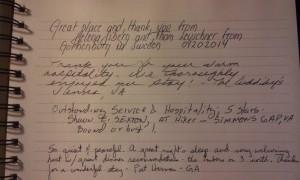 Great place and thank you from
Helena and Thom from
Gothenburg in Sweden 09202014
Thank you for your warm
hospitality. We thoroughly
enjoyed our stay! - The
VA
Outstanding Service & Hospitality; 5 Stars.
Shawn T. Sexton, AT Hiker - SIMMONS GAP, VA
Bound or bust!
So quiet & peaceful. A great night's sleep and very welcoming
host w/ great dinner recommendation - the
for a wonderful stay - Pat - GA